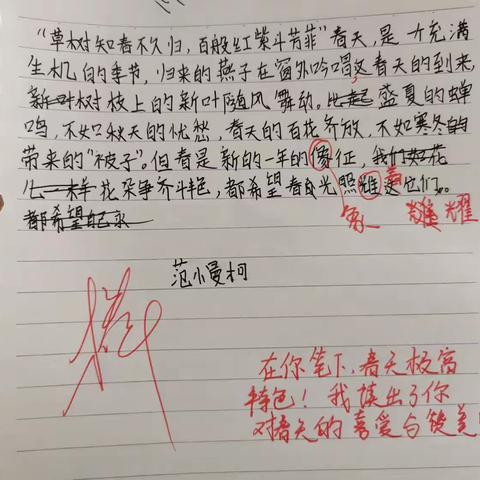 “草树知春不久归，百般红紫斗芳菲”春天，是一个充满
生机的季节，归来的燕子在窗外吟唱这春天的到来，
新叶树枝上的新叶随风舞动。比起盛夏的蝉
鸣，不如秋天的忧愁，春天的百花齐放，不如寒冬的
带来的“被子”。但春是新的一年的像征，我们如花
儿一样花朵争奇斗艳，都希望春光照耀这它们。
象 耀 耀
都希望自己
范小曼柯
在你笔下，春天极富
特色！我读出了你
对春天的喜爱与赞美